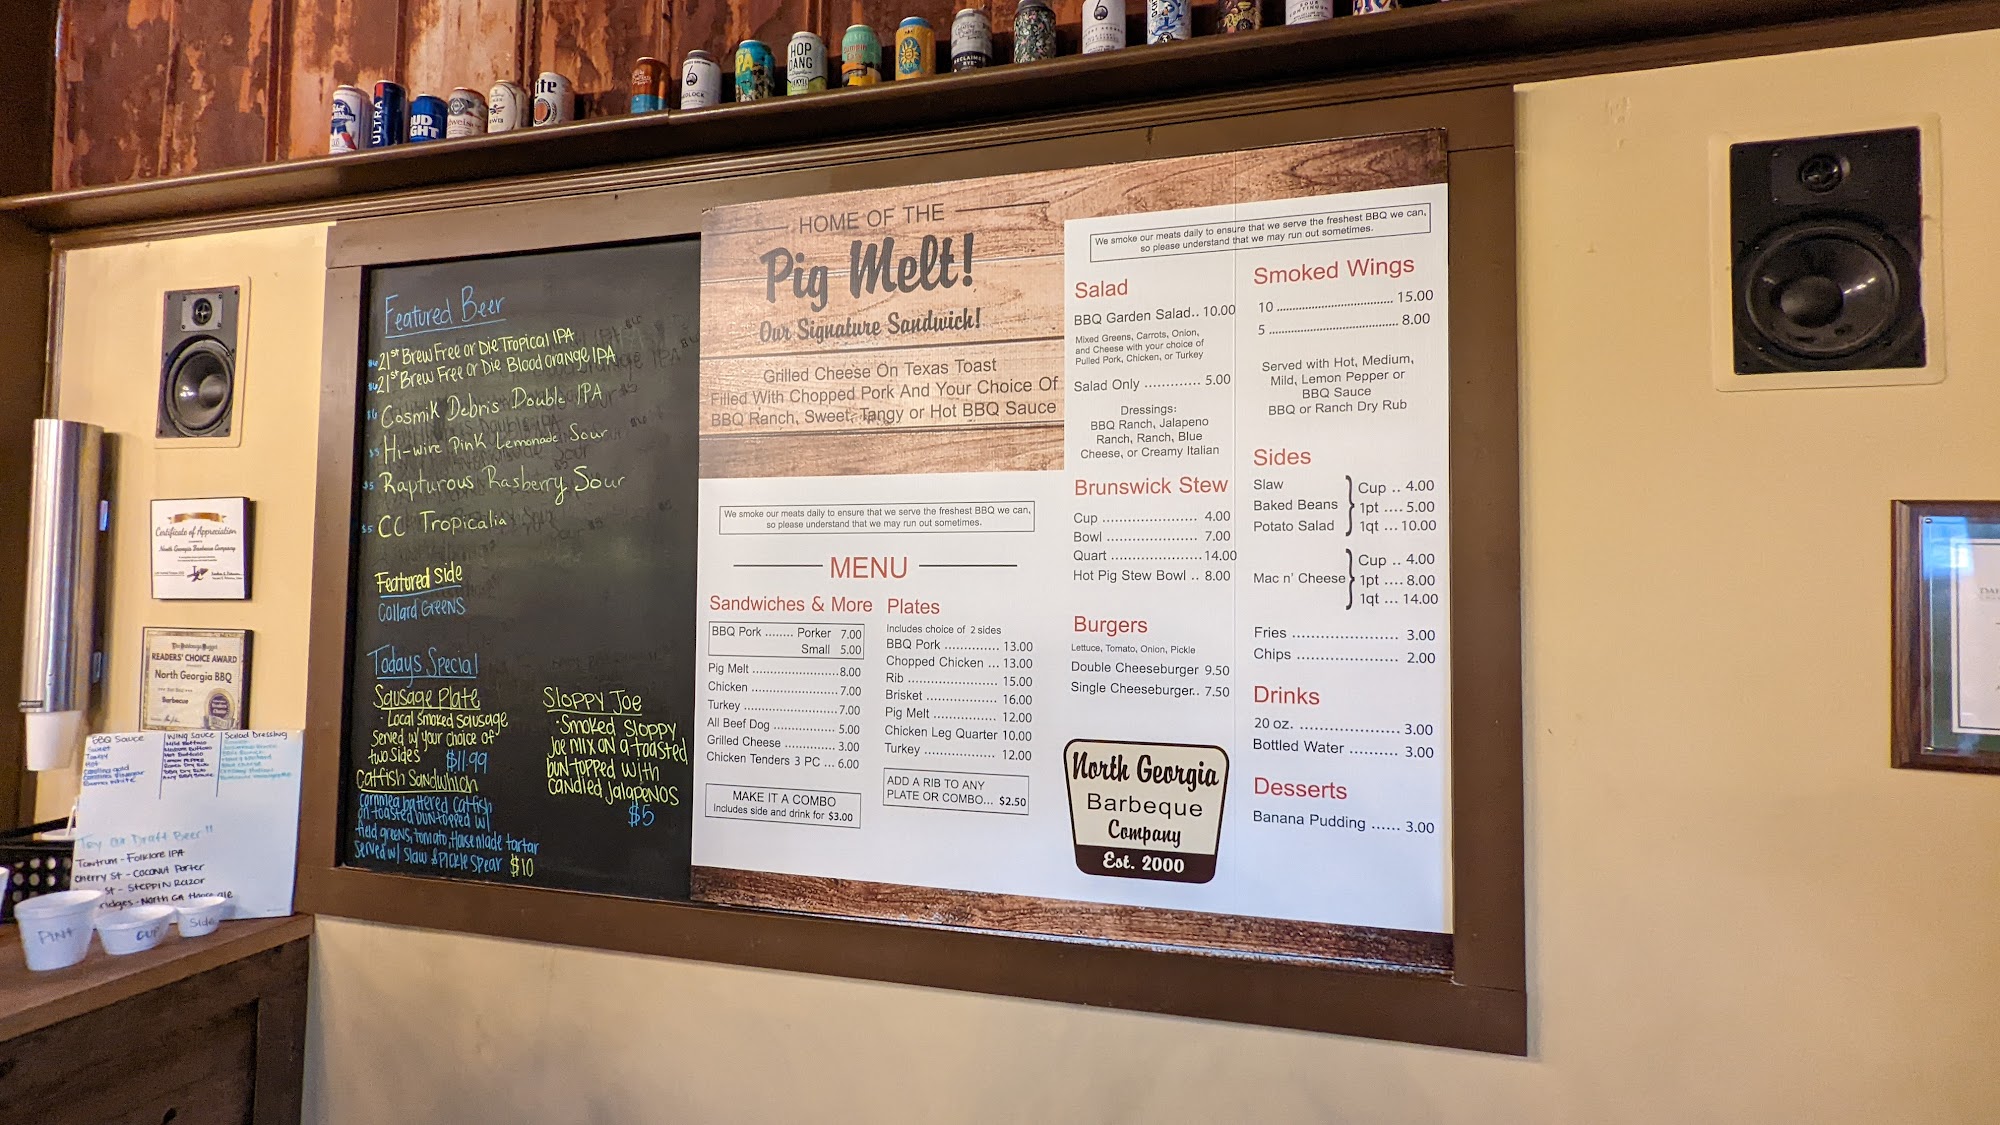 Pabst
ULTRA
BUD
LIGHT
lite
HOP
DANG
IPA
Featured Beer
$6 21st Brew Free or Die Tropical IPA
$6 21st Brew Free or Die Blood Orange IPA
$6 Cosmik Debris Double IPA
$5 Hi-wire Pink Lemonade Sour
$5 Rapturous Rasberry Sour
$5 CC Tropicalia
Featured Side
Collard Greens
Todays Special
Sausage Plate
· Local smoked sausage
served w/ your choice of
two sides $11.99
Catfish Sandwhich
cornmeal battered catfish
on toasted bun topped w/
field greens, tomato, House made tartar
served w/ slaw & pickle spear $10
Sloppy Joe
· Smoked Sloppy
Joe mix on a toasted
bun topped with
candied Jalapenos
$5
HOME OF THE
Pig Melt!
Our Signature Sandwich!
Grilled Cheese On Texas Toast
Filled With Chopped Pork And Your Choice Of
BBQ Ranch, Sweet, Tangy or Hot BBQ Sauce
We smoke our meats daily to ensure that we serve the freshest BBQ we can,
so please understand that we may run out sometimes.
MENU
Sandwiches & More
BBQ Pork ........ Porker 7.00
Small 5.00
Pig Melt ................... 8.00
Chicken ................... 7.00
Turkey ................... 7.00
All Beef Dog ............. 5.00
Grilled Cheese ......... 3.00
Chicken Tenders 3 PC ... 6.00
MAKE IT A COMBO
Includes side and drink for $3.00
Plates
Includes choice of 2 sides
BBQ Pork ............. 13.00
Chopped Chicken ... 13.00
Rib ..................... 15.00
Brisket ................ 16.00
Pig Melt .............. 12.00
Chicken Leg Quarter 10.00
Turkey ................ 12.00
ADD A RIB TO ANY
PLATE OR COMBO... $2.50
We smoke our meats daily to ensure that we serve the freshest BBQ we can,
so please understand that we may run out sometimes.
Salad
BBQ Garden Salad.. 10.00
Mixed Greens, Carrots, Onion,
and Cheese with your choice of
Pulled Pork, Chicken, or Turkey
Salad Only ............ 5.00
Dressings:
BBQ Ranch, Jalapeno
Ranch, Ranch, Blue
Cheese, or Creamy Italian
Brunswick Stew
Cup ..................... 4.00
Bowl .................... 7.00
Quart ................... 14.00
Hot Pig Stew Bowl .. 8.00
Burgers
Lettuce, Tomato, Onion, Pickle
Double Cheeseburger 9.50
Single Cheeseburger.. 7.50
North Georgia
Barbeque
Company
Est. 2000
Smoked Wings
10 ................................ 15.00
5 .................................. 8.00
Served with Hot, Medium,
Mild, Lemon Pepper or
BBQ Sauce
BBQ or Ranch Dry Rub
Sides
Slaw
Baked Beans
Potato Salad
Cup .. 4.00
1pt .... 5.00
1qt ... 10.00
Mac n' Cheese
Cup .. 4.00
1pt .... 8.00
1qt ... 14.00
Fries ....................... 3.00
Chips ...................... 2.00
Drinks
20 oz. ..................... 3.00
Bottled Water .......... 3.00
Desserts
Banana Pudding ...... 3.00
Certificate of Appreciation
North Georgia Barbecue Company
READERS' CHOICE AWARD
North Georgia BBQ
Barbecue
BBQ Sauce
Sweet
Tangy
Hot
Carolina gold
Wing Sauce
Mild Buffalo
Medium Buffalo
Hot Buffalo
Lemon Pepper
Ranch Dry Rub
BBQ Dry Rub
Any BBQ Sauce
Salad Dressing
Try our Draft Beer!!
Tantrum - Folklore IPA
Cherry St - Coconut Porter
St - Steppin Razor
ridges - North GA
PINT
CUP
Side